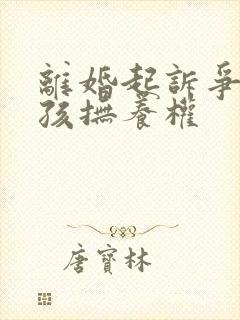 離婚起訴爭
孩撫養權
唐寶林